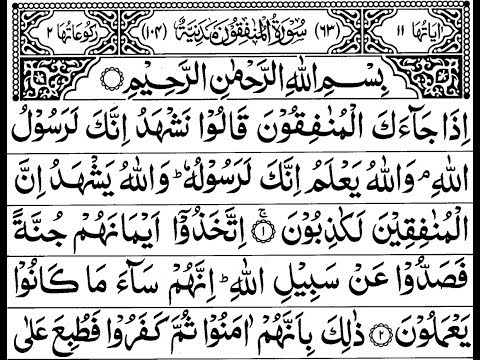 اٰيَاتُهَا ١١ (٦٣) سُوْرَةُ الْمُنٰفِقُوْنَ مَدَنِيَّةٌ (١٠٤) رُكُوْعَاتُهَا ٢
بِسْمِ اللّٰهِ الرَّحْمٰنِ الرَّحِيْمِ
اِذَا جَآءَكَ الْمُنٰفِقُوْنَ قَالُوْا نَشْهَدُ اِنَّكَ لَرَسُوْلُ
اللّٰهِ ۘ وَاللّٰهُ يَعْلَمُ اِنَّكَ لَرَسُوْلُهٗ ؕ وَاللّٰهُ يَشْهَدُ اِنَّ
الْمُنٰفِقِيْنَ لَكٰذِبُوْنَ ۚ ﴿١﴾ اِتَّخَذُوْۤا اَيْمَانَهُمْ جُنَّةً
فَصَدُّوْا عَنْ سَبِيْلِ اللّٰهِ ؕ اِنَّهُمْ سَآءَ مَا كَانُوْا
يَعْمَلُوْنَ ﴿٢﴾ ذٰلِكَ بِاَنَّهُمْ اٰمَنُوْا ثُمَّ كَفَرُوْا فَطُبِعَ عَلٰى